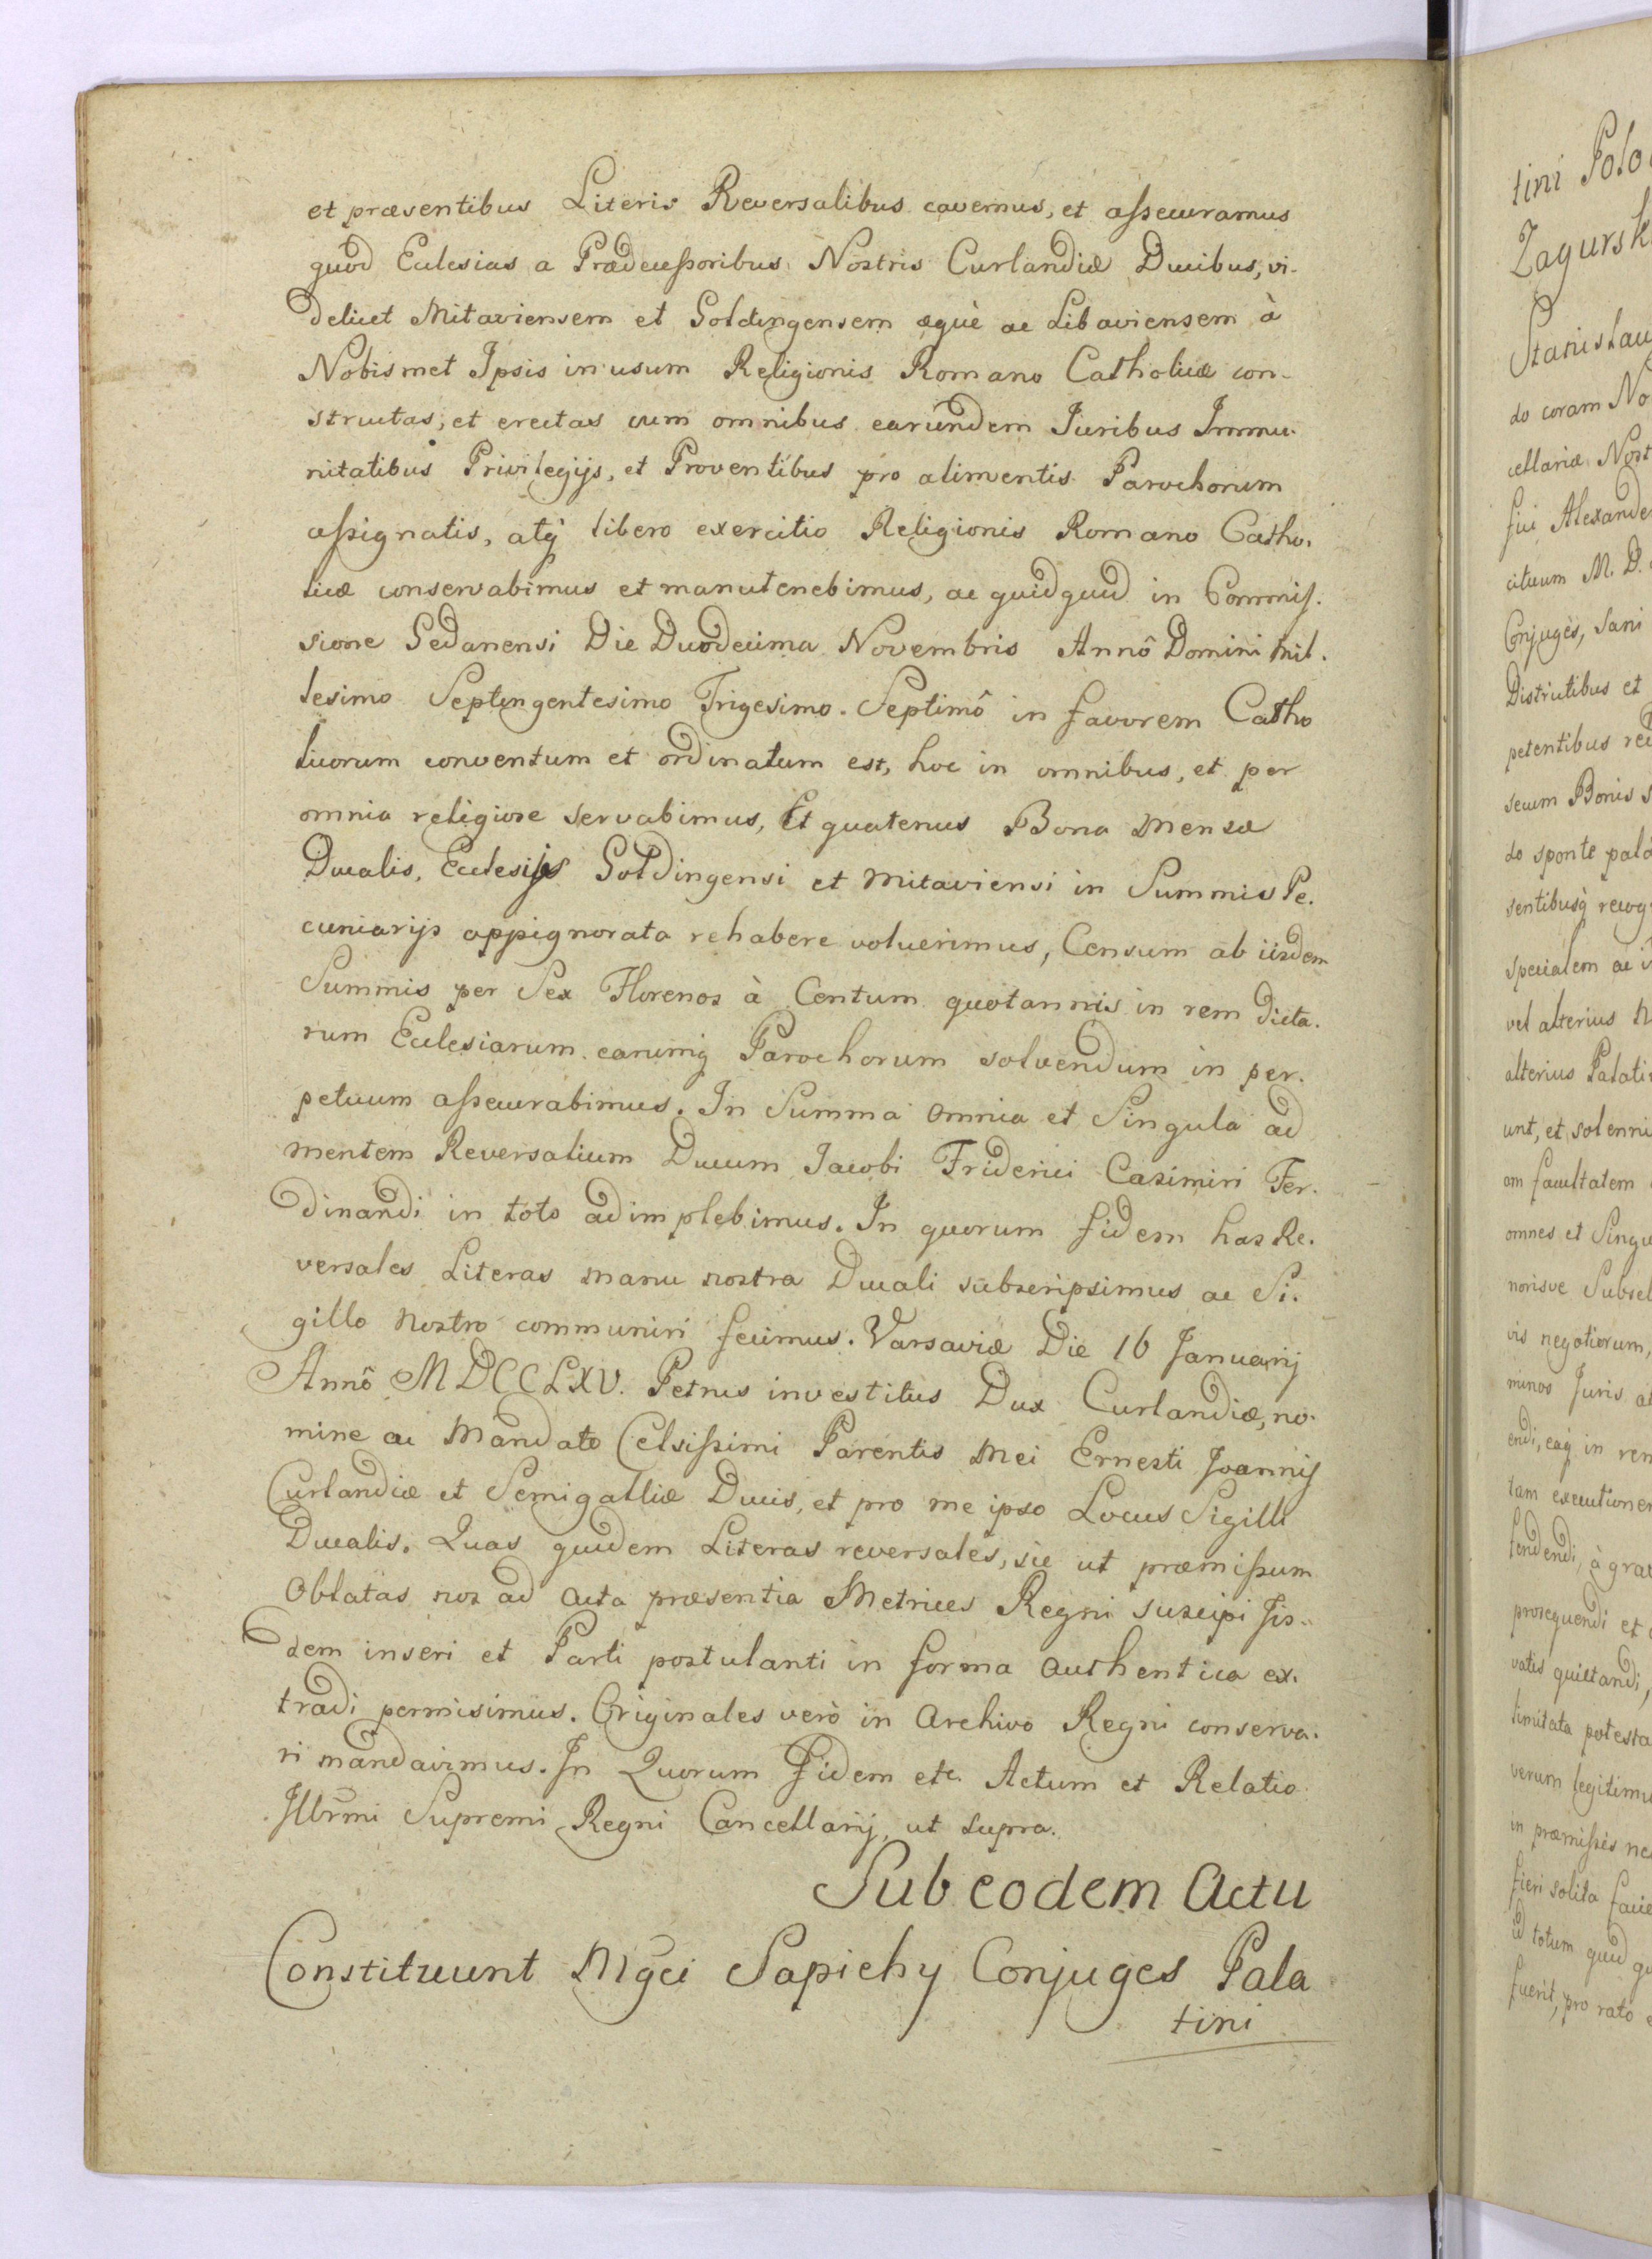 et præsentibus Literis Reversalibus cavemus, et assecuramus
quod Ecclesias a Prædecessoribus Nostris Curlandiæ Ducibus, vi-
delicet Mitaviensem et Goldingensem æquè ac Libaviensem à
Nobismet Ipsis in usum Religionis Romano Catholicæ con-
structas, et erectas cum omnibus earundem Juribus Immu-
nitatibus Privilegijs, et Proventibus pro alimentis Parochorum
assignatis, atq libero exercitio Religionis Romano Catho-
licæ conservabimus et manutenebimus, ac quidquid in Commis-
sione Gedanensi Die Duodecima Novembris Annô Domini Mil-
lesimo Septingentesimo Trigesimo-Septimô in favorem Catho
licorum conventum et ordinatum est, hoc in omnibus, et per
omnia religiose servabimus, Et quatenus Bona Mensæ
Ducalis, Ecclesijs Goldingensi et Mitaviensi in Summis Pe-
cuniarijs appignorata rehabere voluerimus, Censum ab iisdem
Summis per Sex Florenos à Centum quotannis in rem dicta-
rum Ecclesiarum earumq Parochorum solvendum in per-
petuum assecurabimus. In Summa omnia et Singula ad
mentem Reversalium Ducum Jacobi Friderici Casimiri Fer-
dinandi in toto adimplebimus. In quorum fidem has Re-
versales Literas manu nostra Ducali subscripsimus ac Si-
gillo nostro communiri fecimus. Varsaviæ Die 16 Januarij
Annô MDCCLXV. Petrus investitus Dux Curlandiæ, no-
mine ac Mandato Celsissimi Parentis Mei Ernesti Joannis
Curlandiæ et Semigalliæ Ducis, et pro me ipso Locus Sigilli
Ducalis. Quas quidem Literas reversales, sic ut præmissum
Oblatas nos ad Acta præsentia Metrices Regni suscipi Iis-
dem inseri et Parti postulanti in forma Authentica ex-
tradi permisimus. Originales verò in Archivo Regni conserva-
ri mandavimus. In Quorum Fidem etc. Actum et Relatio
Illrmi Supremi Regni Cancellarij, ut supra.
Sub eodem Actu
Constituunt Mgci Sapiehy Conjuges Pala
tini
tini Polo
Zagursk
Stanislau
do coram No
cellariæ Nost
sui Alexande
M. D.
Conjuges, sani
Districtibus et
petentibus
secum Bonis s
do sponte
sentibusq recog
specialem ac
vel alterius N
alterius Palati
unt, et solenni
am facultatem
omnes et Singu
norisve Subsel
vis negotiorum,
minos Juris
endi, eaq in rem
tam executionem
tendendi, à grav
prosequendi et
vatis quietandi,
limitata potesta
verum legitimu
in præmissis ne
fieri solita facie
id totum quid qu
fuerit, pro rato